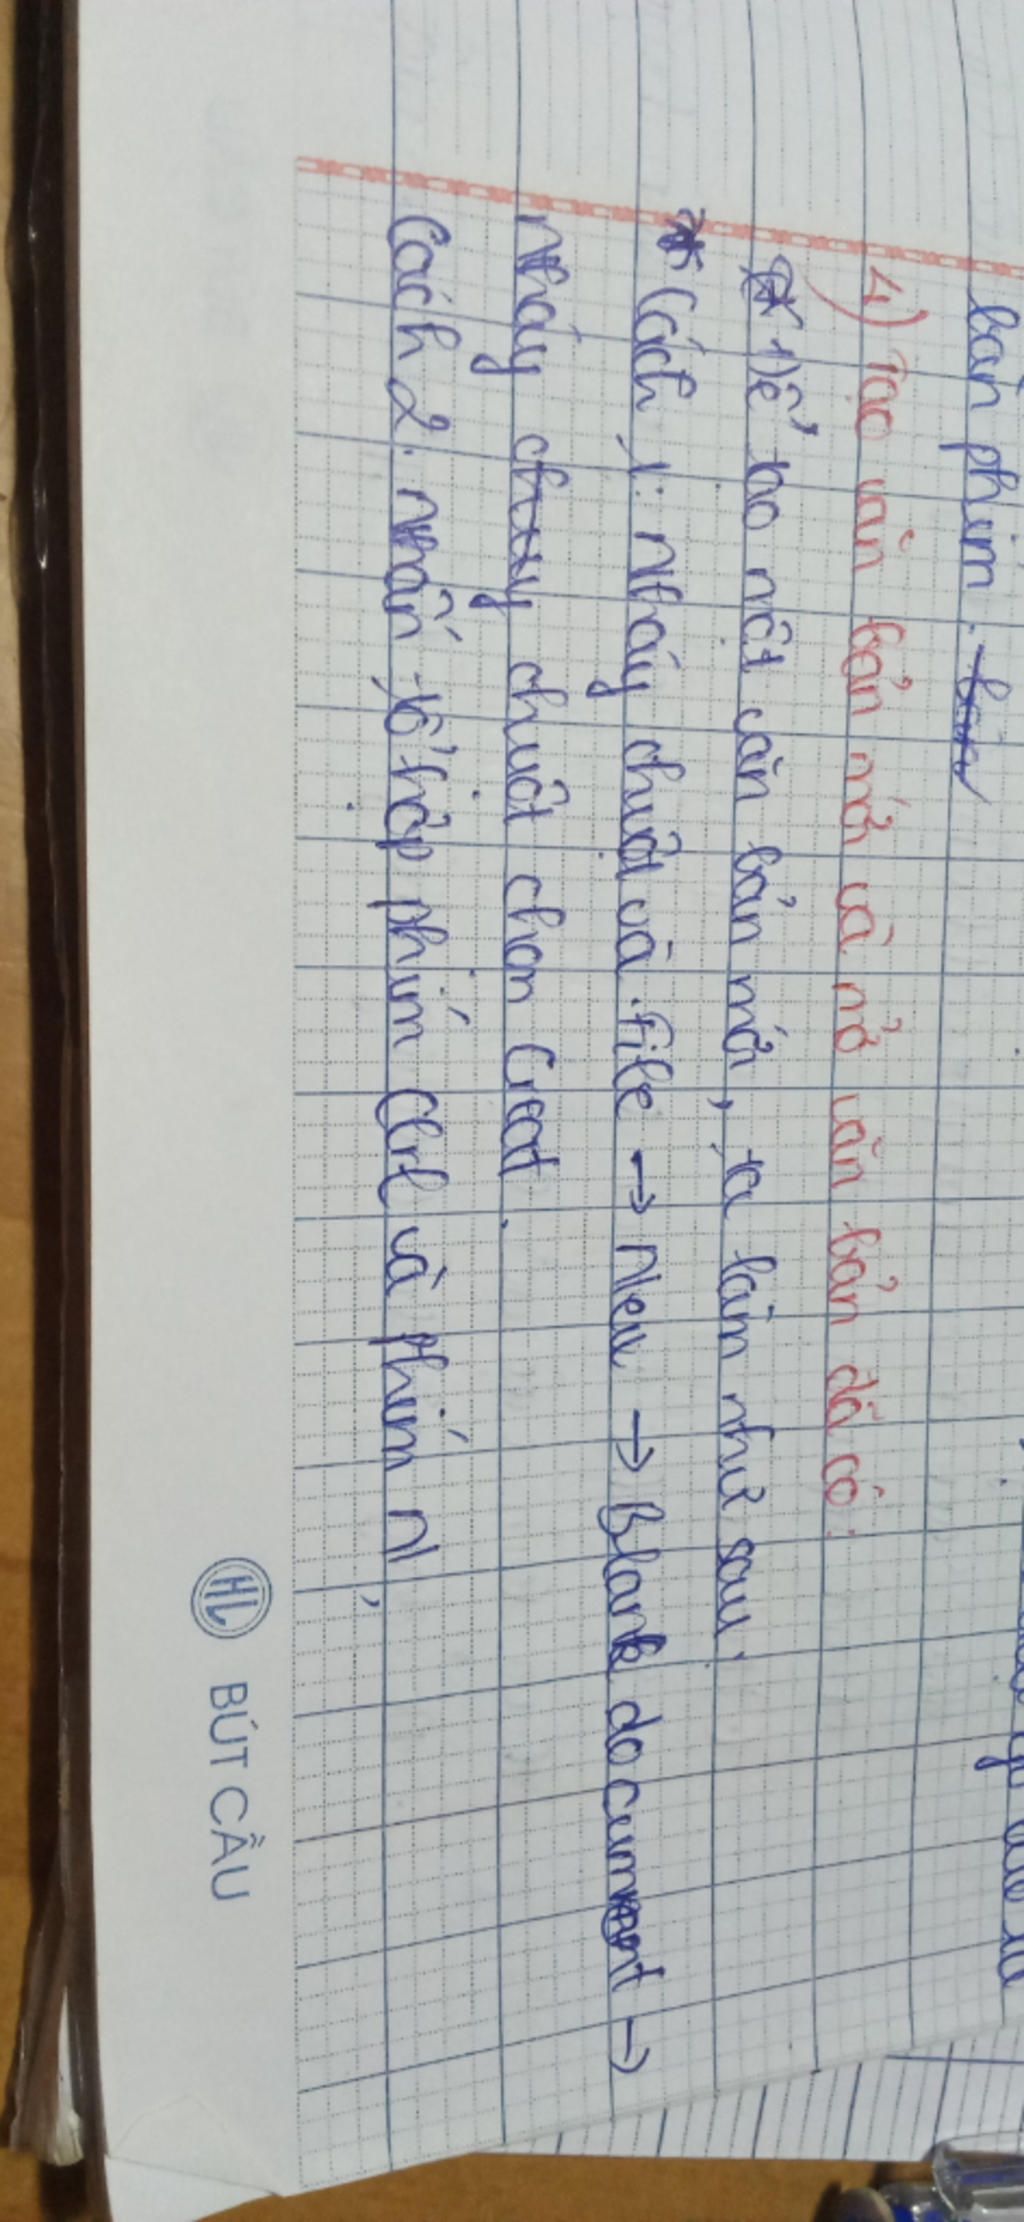 bàn phím.
4) Tạo văn bản mới và mở văn bản đã có:
* Để tạo một căn bản mới, ta làm như sau.
* Cách 1: Nháy chuột và File → New → Blank document →
nháy chuột chọn Creat.
Cách 2: nhấn tổ hợp phím Ctrl và phím N
HL BÚT CẦU